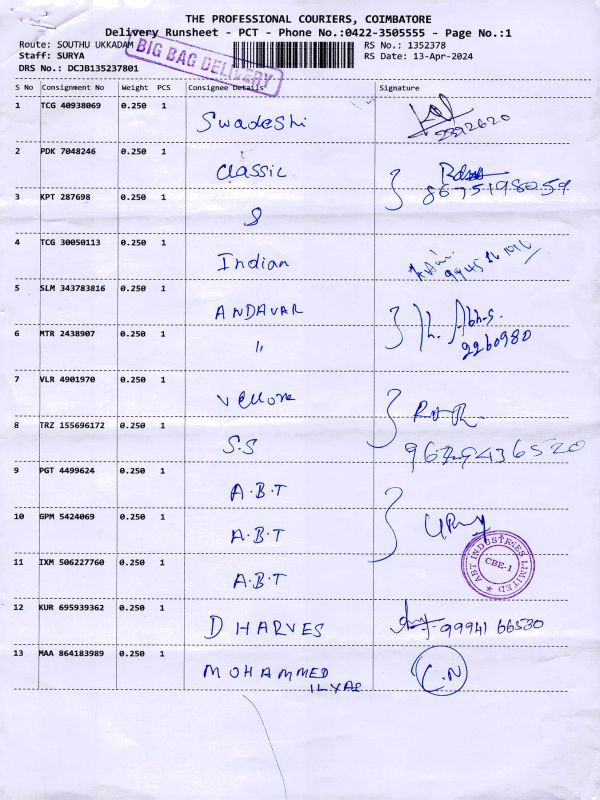 THE PROFESSIONAL COURIERS, COIMBATORE
Delivery Runsheet - PCT - Phone No.:0422-3505555 - Page No.:1
Route: SOUTHU UKKADAM
RS No.: 1352378
Staff: SURYA
RS Date: 13-Apr-2024
DRS No.: DCJB135237801
BIG BAG DELIVERY
S No Consignment No Weight PCS Consignee Details Signature
1 TCG 40938069 0.250 1 Swadeshi
2392620
2 PDK 7048246 0.250 1 Classic
8675198059
3 KPT 287698 0.250 1
4 TCG 30050113 0.250 1 Indian
5 SLM 343783816 0.250 1 ANDAVAR
6 MTR 2438907 0.250 1 "
2260980
7 VLR 4901970 0.250 1 Vellore
8 TRZ 155696172 0.250 1 S.S
9 PGT 4499624 0.250 1 A.B.T
10 GPM 5424069 0.250 1 A.B.T
11 IXM 506227760 0.250 1 A.B.T
ABT INDUSTRIES LIMITED
CBE-1
12 KUR 695939362 0.250 1 DHARVES 99941 66530
13 MAA 864183989 0.250 1 MOHAMMED
ILYAS
C.N